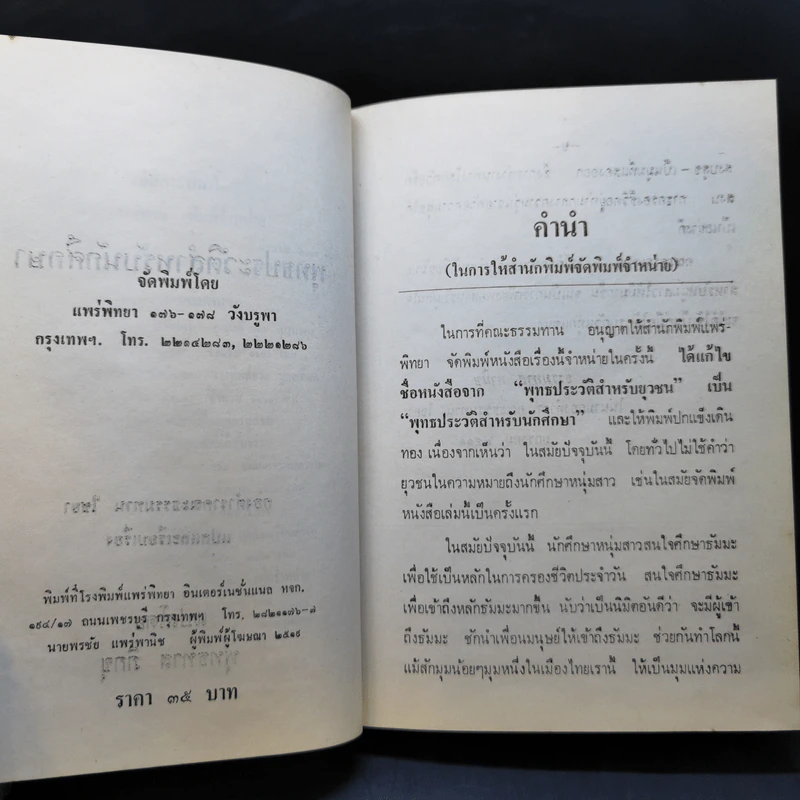 จัดพิมพ์โดย
แพร่พิทยา ๑๗๖-๑๗๘ วังบูรพา
กรุงเทพฯ. โทร. ๒๒๑๔๒๘๓, ๒๒๒๑๒๘๖
พิมพ์ที่โรงพิมพ์แพร่พิทยา อินเตอร์เนชั่นแนล หจก.
๑๙๔/๑๗ ถนนเพชรบุรี กรุงเทพฯ โทร. ๒๘๒๑๑๗๖-๗
นายพรชัย แพร่พานิช ผู้พิมพ์ผู้โฆษณา ๒๕๑๙
ราคา ๓๕ บาท
คำนำ
(ในการให้สำนักพิมพ์จัดพิมพ์จำหน่าย)
ในการที่คณะธรรมทาน อนุญาตให้สำนักพิมพ์แพร่-
พิทยา จัดพิมพ์หนังสือเรื่องนี้จำหน่ายในครั้งนี้ ได้แก้ไข
ชื่อหนังสือจาก “พุทธประวัติสำหรับยุวชน” เป็น
“พุทธประวัติสำหรับนักศึกษา” และให้พิมพ์ปกแข็งเดิน
ทอง เนื่องจากเห็นว่า ในสมัยปัจจุบันนี้ โดยทั่วไปไม่ใช้คำว่า
ยุวชนในความหมายถึงนักศึกษาหนุ่มสาว เช่นในสมัยจัดพิมพ์
หนังสือเล่มนี้เป็นครั้งแรก
ในสมัยปัจจุบันนี้ นักศึกษาหนุ่มสาวสนใจศึกษาธัมมะ
เพื่อใช้เป็นหลักในการครองชีวิตประจำวัน สนใจศึกษาธัมมะ
เพื่อเข้าถึงหลักธัมมะมากขึ้น นับว่าเป็นนิมิตอันดีว่า จะมีผู้เข้า
ถึงธัมมะ ชักนำเพื่อนมนุษย์ให้เข้าถึงธัมมะ ช่วยกันทำโลกนี้
แม้สักมุมน้อยๆมุมหนึ่งในเมืองไทยเรานี้ ให้เป็นมุมแห่งความ